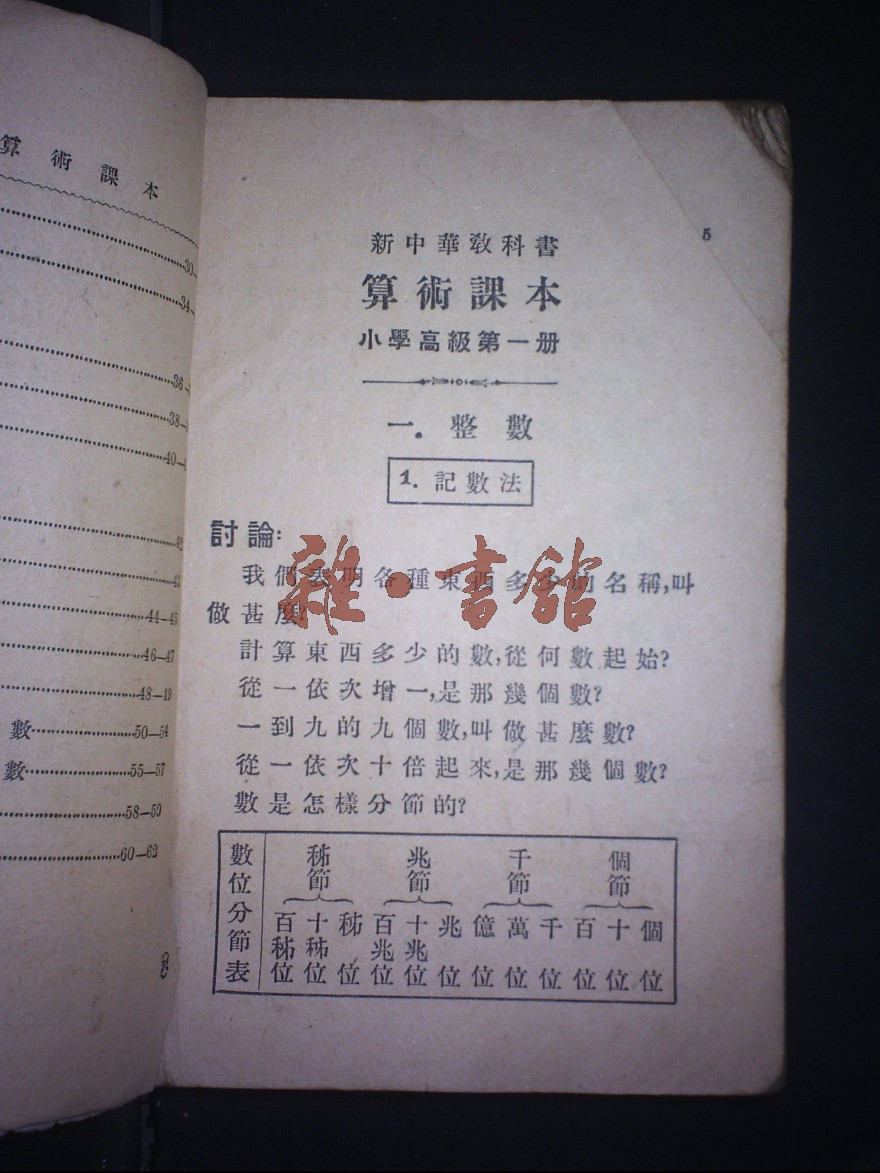 算術課本
30-
34-
36-
38-
40-
42
43
44—45
46—47
48—49
數 50—54
數 55—57
58—59
60—63
5
新中華教科書
算術課本
小學高級第一册
一. 整數
1. 記數法
討論:
我們表明各種東西多少的名稱,叫
做甚麼?
計算東西多少的數,從何數起始?
從一依次增一,是那幾個數?
一到九的九個數,叫做甚麼數?
從一依次十倍起來,是那幾個數?
數是怎樣分節的?
數位分節表
秭節 兆節 千節 個節
百秭位 十秭位 秭位 百兆位 十兆位 兆位 億位 萬位 千位 百位 十位 個位
雜·書館